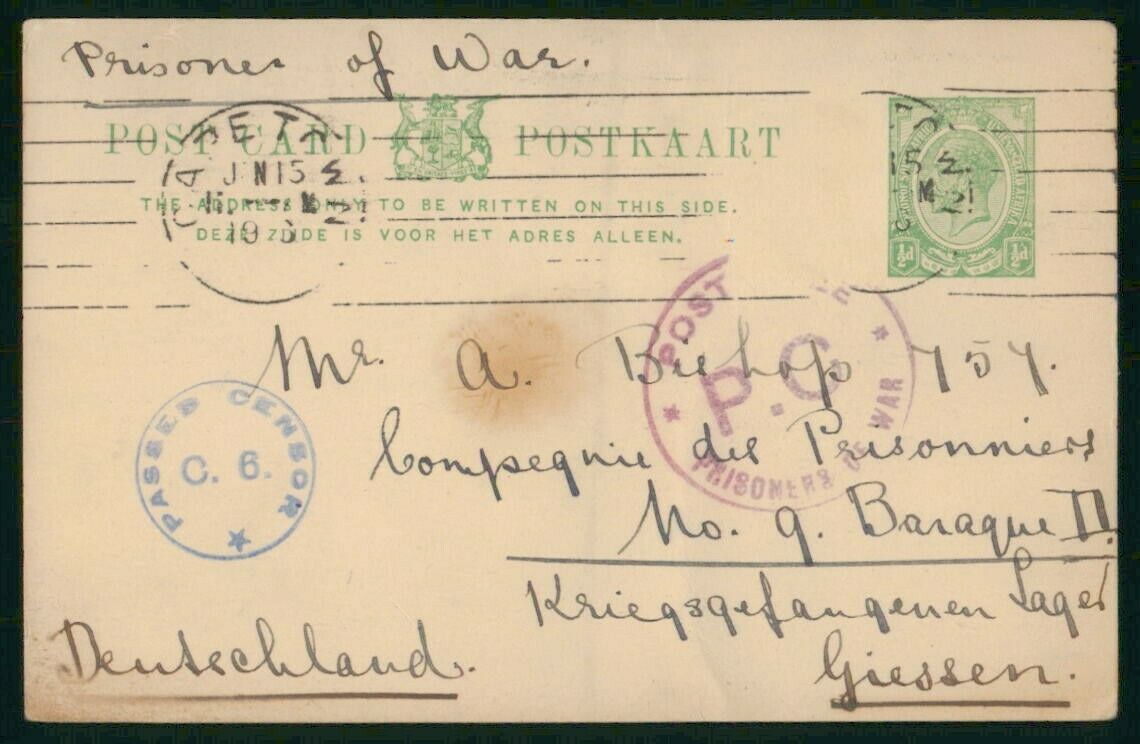 Prisoner of War.
POST CARD POSTKAART
THE ADDRESS ONLY TO BE WRITTEN ON THIS SIDE.
DEZE ZIJDE IS VOOR HET ADRES ALLEEN.
JN 15
½d ½d
POST
P.C
PRISONERS OF WAR
Mr. A. Bishop 757.
PASSED CENSOR
C. 6.
Compegnie des Prisonniers
No. 9. Baraque II.
Kriegsgefangenen Lager
Deutschland.
Giessen.